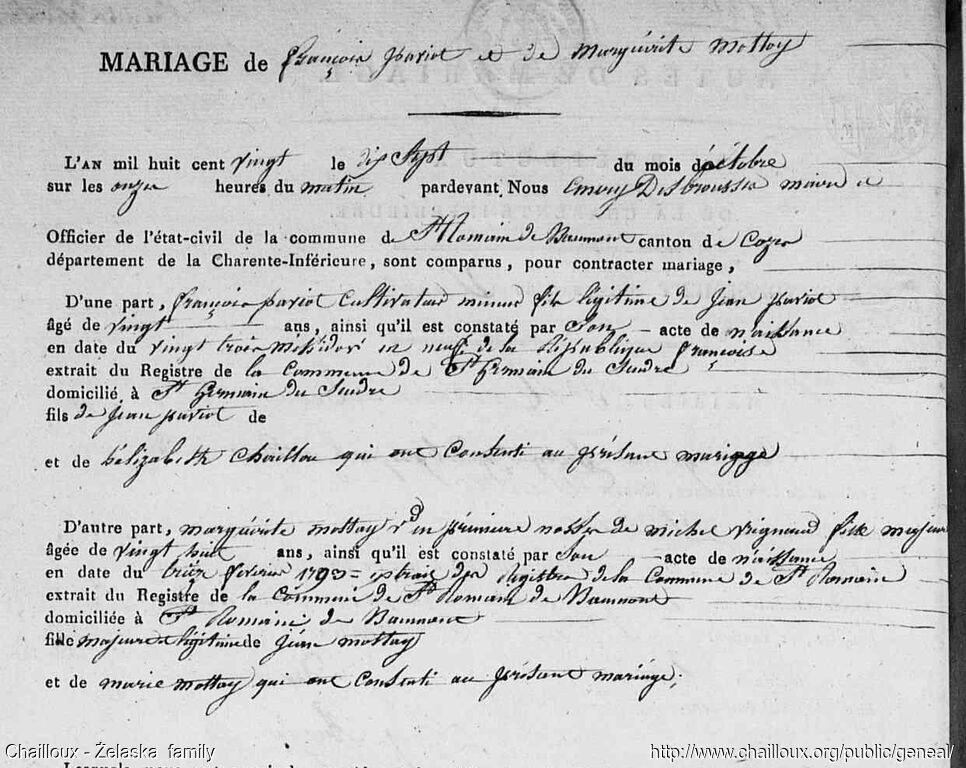 MARIAGE de françois pariot et de Marguérite Mottay
L'AN mil huit cent vingt le dix Sept du mois d'octobre
sur les onze heures du matin pardevant Nous Emery Desbrousses maire et
Officier de l'état-civil de la commune de St Romain de Beaumont canton de Cozes
département de la Charente-Inférieure, sont comparus, pour contracter mariage,
D'une part, françois pariot Cultivateur mineur fils légitime de Jean pariot
âgé de vingt ans, ainsi qu'il est constaté par Son acte de naissance
en date du vingt trois Méssidor en neuf de la République françoise
extrait du Registre de la Commune de St Germain du Seudre
domicilié à St Germain du Seudre
fils de Jean pariot de
et de Élizabeth Chaillou qui ont Consenti au présent mariage
D'autre part, marguérite mottay Vd en prémiere de michel vignaud fille majeure
âgée de vingt huit ans, ainsi qu'il est constaté par Son acte de naissance
en date du février 1793 = extrait des Registres de la Commune de St Romain
extrait du Registre de la Commune de St Romain de Beaumont
domiciliée à St Romain de Beaumont
fille majeure et légitime de Jéan mottay
et de marie mottay qui ont Consenti au présent mariage;
Chailloux - Želaska family
http://www.chailloux.org/public/geneal/